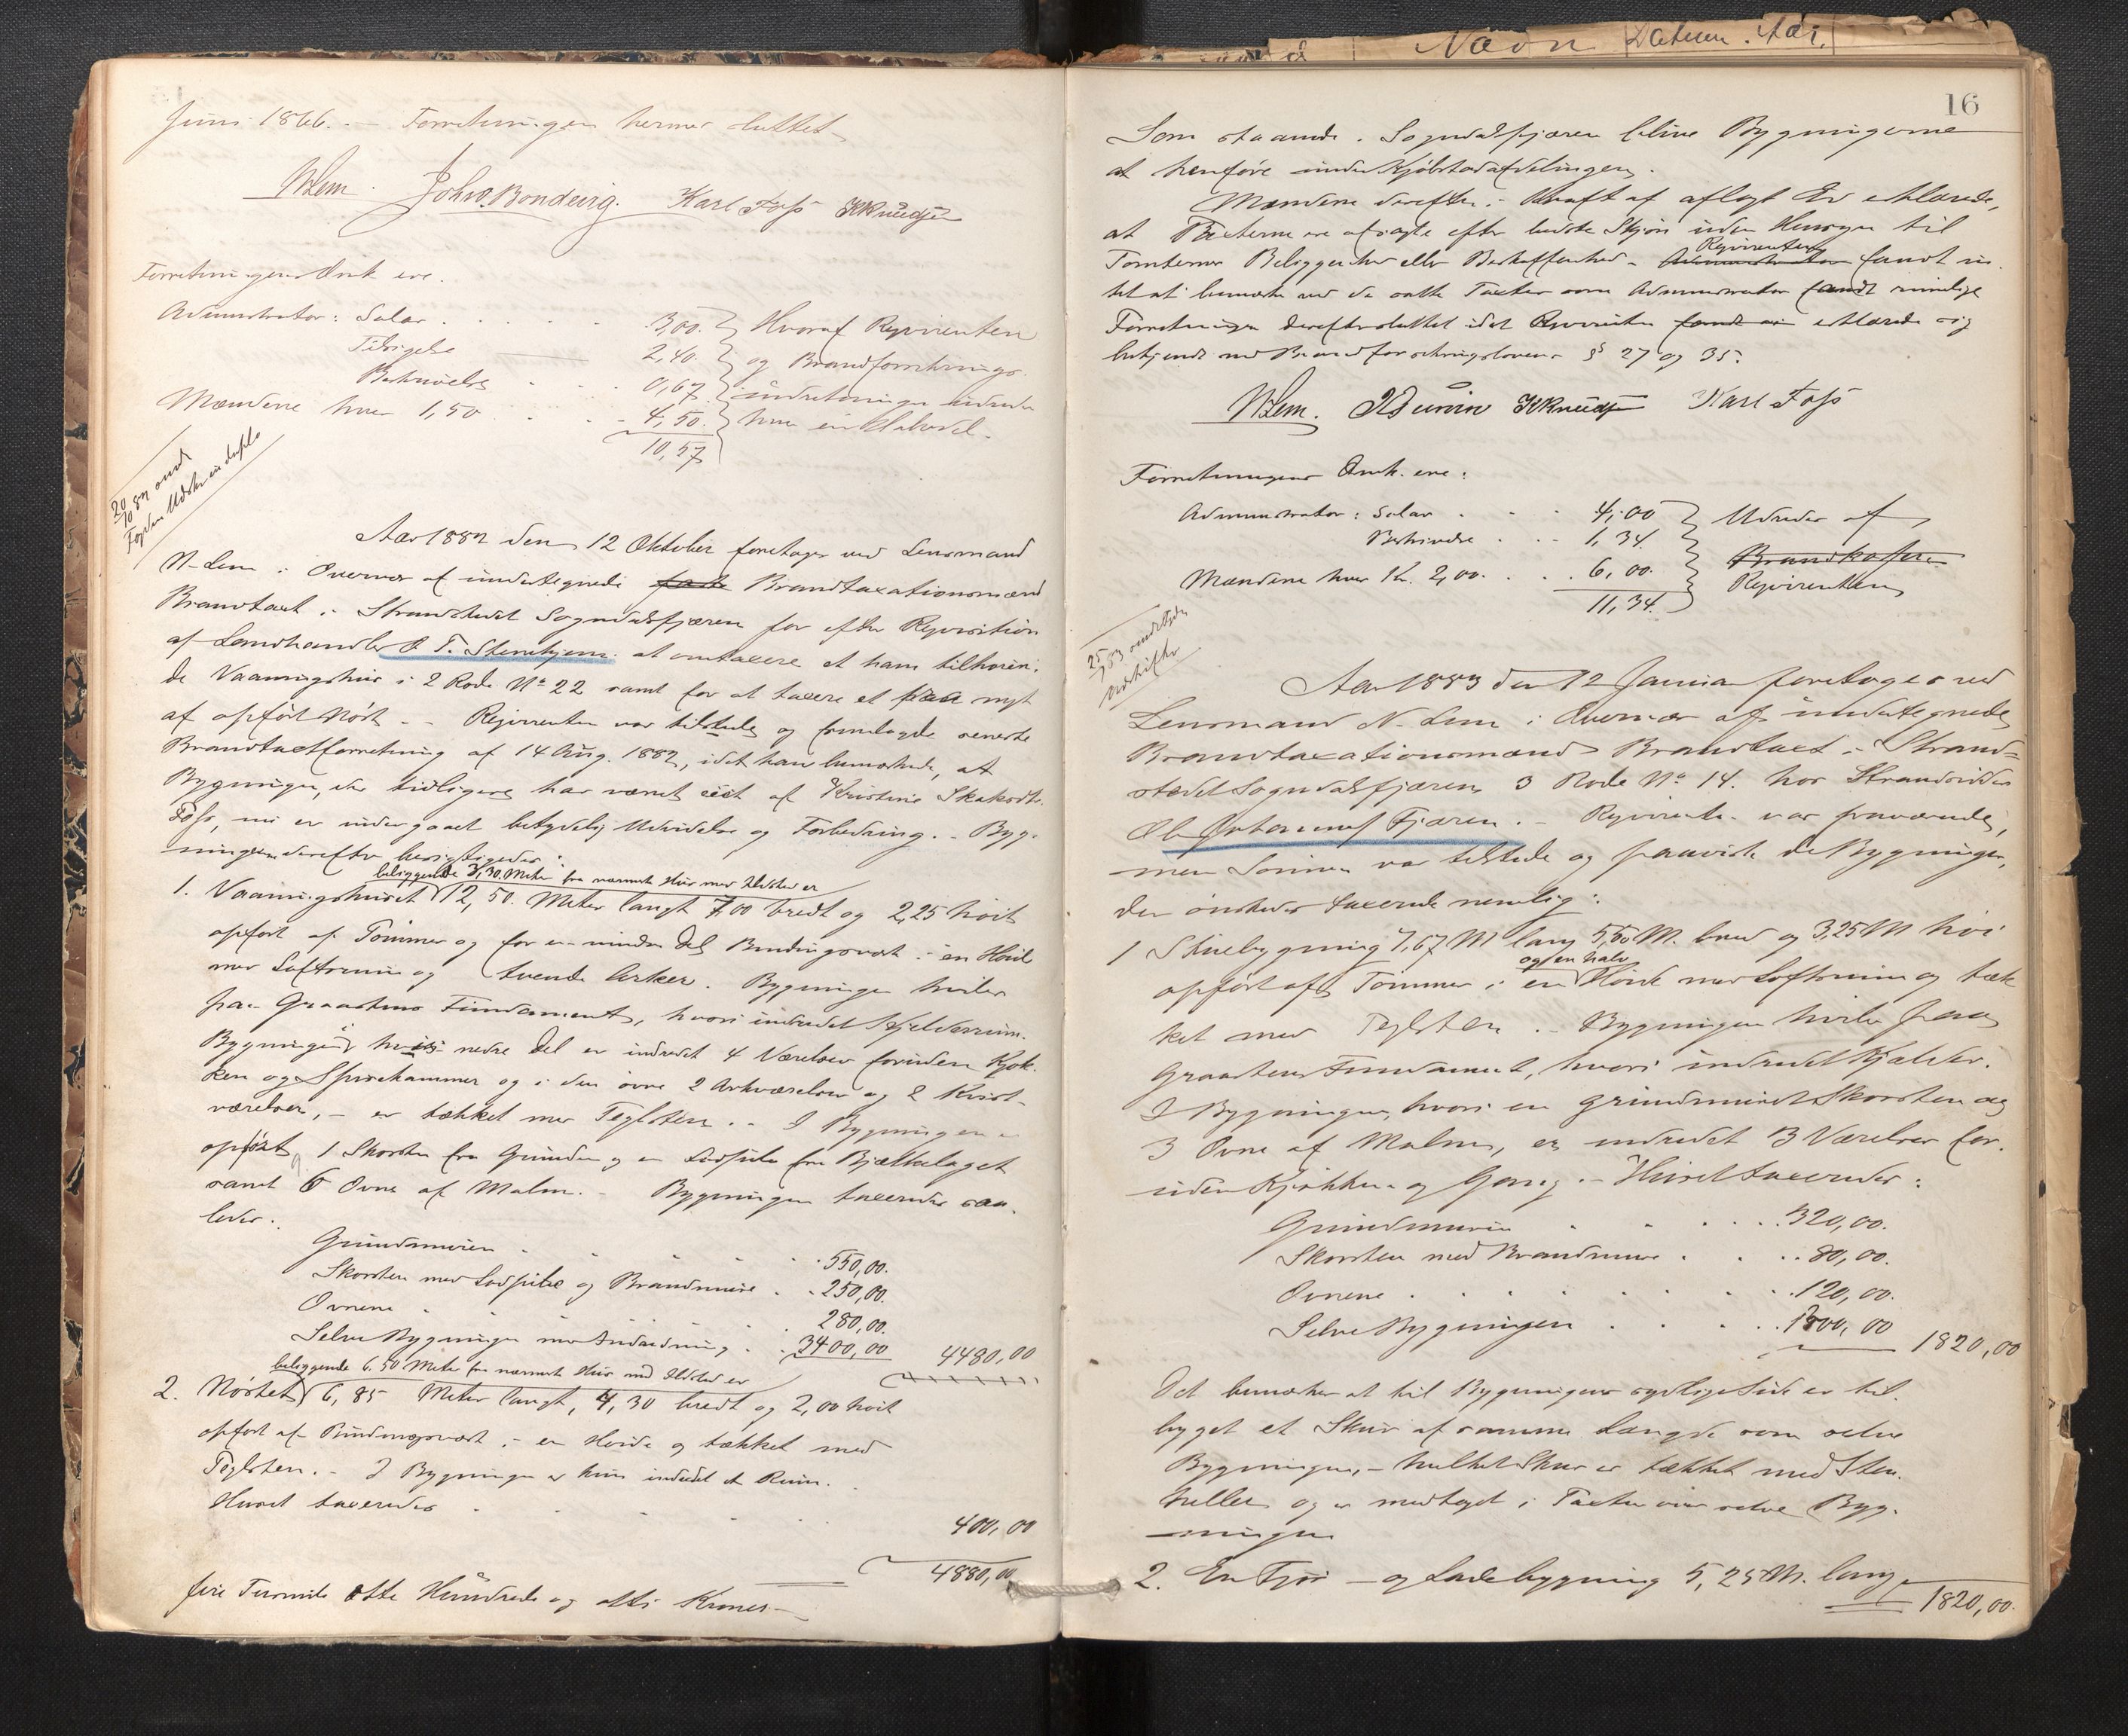 Juni 1866. – Forretningen hermed sluttet
NLem. Joh. O. Bondevig. Karl Foss KKnudsen
Forretningens Omk. ere.
Administrator: Salær . . . 3,00.
Tilsigelse 2,40.
Beskrivelse . . . 0,67
Mændene hver 1,50 . . . 4,50.
10,57
Hvoraf Rqvirenten
og Brandforsikrings-
indretningen udreder
hver en Halvdel.
20/10 82 sendt
Fogden Udskr. in duplo
Aar 1882 den 12 Oktober foretoges ved Lensmand
N. Lem i Overvær af undertegnede faste Brandtaxationsmænd
Brandtaxt i Strandstedet Sogndalsfjæren for efter Reqvisition
af Landhandler O. T. Stenehjem at omtaxere et ham tilhøren-
de Vaaningshus i 2 Rode No 22 samt for at taxere et nyt
af opført Nøst. – Reqvirenten var tilstede og fremlagde seneste
Brandtaxtforretning af 14 Aug. 1882, idet han bemærkede, at
Bygningen, der tidligere har været eiet af Kristine Skakodt-
Foss, nu er undergaaet betydelig Udvidelse og Forbedring. – Byg-
ningerne derefter besigtigedes:
beliggende 3,30 Meter fra nærmeste Hus med Ildsted er
1. Vaaningshuset 12,50 Meter langt 7,00 bredt og 2,25 høit
opført af Tømmer og for en mindre Del Bindingsværk i en Høide
med Loftsrum og tvende Arker. Bygningen hviler
paa Graastens Fundament, hvori indredet Kjelderrum.
Bygningen, i hvis nedre Del er indredet 4 Værelser foruden Kjøk-
ken og Spisekammer og i den øvre 2 Arkværelser og 2 Kvist-
værelser, – er tækket med Teglsten. – I Bygningen er
opført 1 Skorsten fra Grunden og en Lodpibe fra Bjælkelaget
samt 6 Ovne af Malm. – Bygningen taxeredes saa-
ledes:
Grundmuren . . . 550,00.
Skorsten med Lodpibe og Brandmure . . 250,00.
Ovnene . . . 280,00.
Selve Bygningen med Indredning . . 3400,00 4480,00
beliggende 6,50 Meter fra nærmeste Hus med Ildsted er
2. Nøstet 6,85 Meter langt, 4,30 bredt og 2,00 høit
opført af Bindingsværk i en Høide og tækket med
Teglsten. – I Bygningen er kun indredet et Rum.
Huset taxeredes . . . 400,00
4880,00
fire Tusinde otte Hundrede og otti Kroner –
Nævn Datum. Aar.
16
Som staaende i Sogndalsfjæren blive Bygningerne
at henføre under Kjøbstadafdelingen.
Mændene derefter i Kraft af aflagt Ed erklærede,
at Taxterne ere afsagte efter bedste Skjøn uden Hensyn til
Reqvirenten
Tomternes Beliggenhed eller Beskaffenhed. – Administrator fandt in-
tet at bemærke ved de satte Taxter som Administrator fandt rimelige
Forretningen derefter sluttet idet Reqvirenten fandt in erklærede sig
bekjendt med Brandforsikringslovens §§ 27 og 35.
NLem. KKnudsen Karl Foss
Forretningens Omk. ere:
Administrator: Salær . . . 4,00
Beskrivelse . . . 1,34.
Mændene hver Kr. 2,00. . . . 6,00.
11,34.
Udredes af
Brandkassen
Reqvirenten
Udskift
Aar 1883 den 12 Januar foretoges ved
Lensmand N. Lem i Overvær af undertegnede
Brandtaxationsmænd Brandtaxt i Strand-
stedet Sogndalsfjæren 3 Rode No 14. hos Strandsidder
Ole Johannes. Fjæren. – Reqvirenten var fraværende,
men Sønnen var tilstede og paaviste de Bygninger,
der ønskedes taxerede nemlig:
1 Stuebygning 7,67 M lang 5,60 M. bred og 3,25 M høi
og en halv
opført af Tømmer i en Høide med Loftsrum og tæk-
ket med Teglsten. – Bygningen hviler paa
Graastens Fundament, hvori indredet Kjelder.
I Bygningen, hvori en grundmuret Skorsten og
3 Ovne af Malm, er indredet 3 Værelser for-
uden Kjøkken og Gang. – Huset taxeredes:
Grundmuren . . . 320,00.
Skorsten med Brandmure . . . 80,00.
Ovnene . . . 120,00.
Selve Bygningen . . . 1300,00 1820,00
Det bemærkes at til Bygningens sydlige Side er til-
bygget et Skur af samme Længde som selve
Bygningen, – hvilket Skur er tækket med Sten-
heller og er medtaget i Taxten over selve Byg-
ningen
2. En Fjøs- og Ladebygning 5,25 M. lang
1820,00.